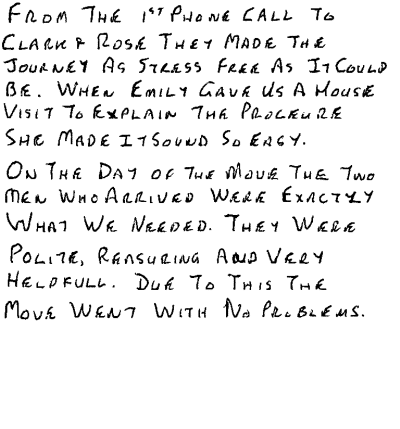 FROM THE 1ST PHONE CALL TO
CLARK & ROSE THEY MADE THE
JOURNEY AS STRESS FREE AS IT COULD
BE. WHEN EMILY GAVE US A HOUSE
VISIT TO EXPLAIN THE PROCEURE
SHE MADE IT SOUND SO EASY.
ON THE DAY OF THE MOVE THE TWO
MEN WHO ARRIVED WERE EXACTLY
WHAT WE NEEDED. THEY WERE
POLITE, REASURING AND VERY
HELPFULL. DUE TO THIS THE
MOVE WENT WITH NO PROBLEMS.